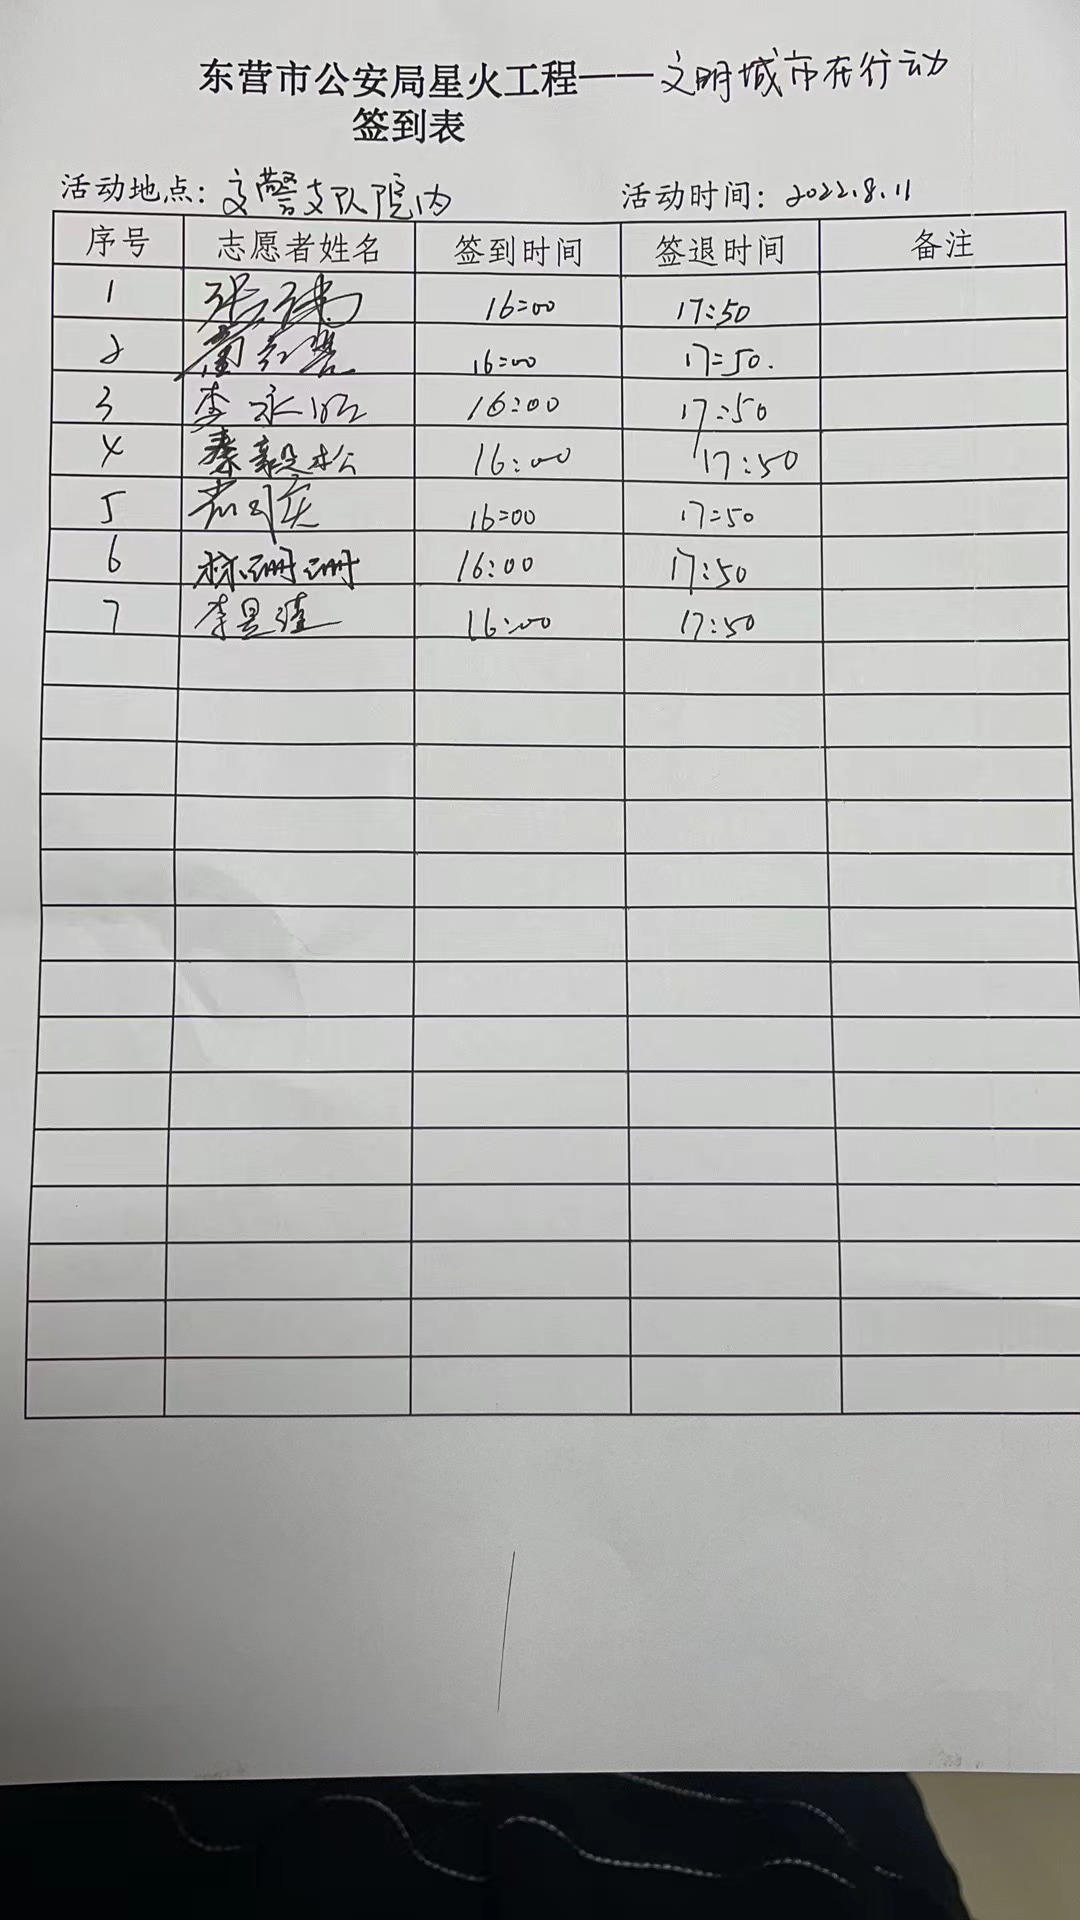 东营市公安局星火工程——文明城市在行动
签到表
活动地点：交警支队院内 活动时间：2022.8.11
序号 志愿者姓名 签到时间 签退时间 备注
1 张 16:00 17:50
2 16:00 17:50.
3 李永 16:00 17:50
4 秦毅松 16:00 17:50
5 16:00 17:50
6 林珊珊 16:00 17:50
7 李昱瑾 16:00 17:50